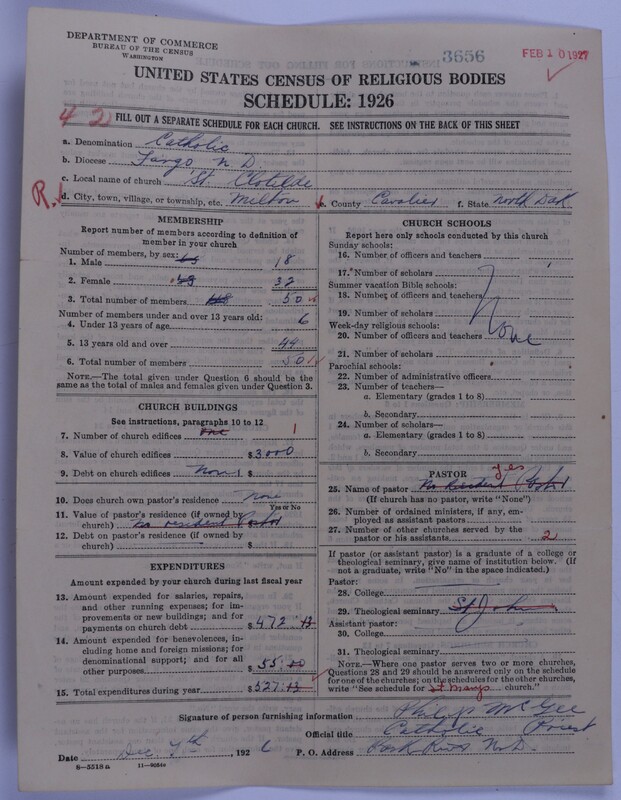 DEPARTMENT OF COMMERCE
BUREAU OF THE CENSUS
WASHINGTON
3656
FEB 10 1927
UNITED STATES CENSUS OF RELIGIOUS BODIES
SCHEDULE: 1926
42
FILL OUT A SEPARATE SCHEDULE FOR EACH CHURCH. SEE INSTRUCTIONS ON THE BACK OF THIS SHEET
a. Denomination Catholic
b. Diocese Fargo N D.
c. Local name of church St. Clotilde
R.
d. City, town, village, or township, etc. Milton e. County Cavalier f. State North Dak
MEMBERSHIP
Report number of members according to definition of member in your church
Number of members, by sex:
1. Male 18
2. Female 32
3. Total number of members 50
Number of members under and over 13 years old:
4. Under 13 years of age 6
5. 13 years old and over 44
6. Total number of members 50
NOTE.—The total given under Question 6 should be the same as the total of males and females given under Question 3.
CHURCH BUILDINGS
See instructions, paragraphs 10 to 12
7. Number of church edifices one 1
8. Value of church edifices $3000
9. Debt on church edifices None $
10. Does church own pastor's residence None
Yes or No
11. Value of pastor's residence (if owned by church) no resident Pastor
12. Debt on pastor's residence (if owned by church) $
EXPENDITURES
Amount expended by your church during last fiscal year
13. Amount expended for salaries, repairs, and other running expenses; for improvements or new buildings; and for payments on church debt $472.13
14. Amount expended for benevolences, including home and foreign missions; for denominational support; and for all other purposes $55.00
15. Total expenditures during year $527.13
CHURCH SCHOOLS
Report here only schools conducted by this church
Sunday schools:
16. Number of officers and teachers
17. Number of scholars
Summer vacation Bible schools:
18. Number of officers and teachers
19. Number of scholars
None
Week-day religious schools:
20. Number of officers and teachers
21. Number of scholars
Parochial schools:
22. Number of administrative officers
23. Number of teachers—
a. Elementary (grades 1 to 8)
b. Secondary
24. Number of scholars—
a. Elementary (grades 1 to 8)
b. Secondary
PASTOR
yes
25. Name of pastor No Resident Pastor
(If church has no pastor, write "None")
26. Number of ordained ministers, if any, employed as assistant pastors
27. Number of other churches served by the pastor or his assistants 2
If pastor (or assistant pastor) is a graduate of a college or theological seminary, give name of institution below. (If not a graduate, write "No" in the space indicated.)
Pastor:
28. College
29. Theological seminary St John
Assistant pastor:
30. College
31. Theological seminary
NOTE.—Where one pastor serves two or more churches, Questions 28 and 29 should be answered only on the schedule for one of the churches; on the schedules for the other churches, write "See schedule for St Marys church."
Signature of person furnishing information Philip McGee
Official title Catholic Priest
Date Dec 7th 1926 P. O. Address Park River N.D.
8—5518 a